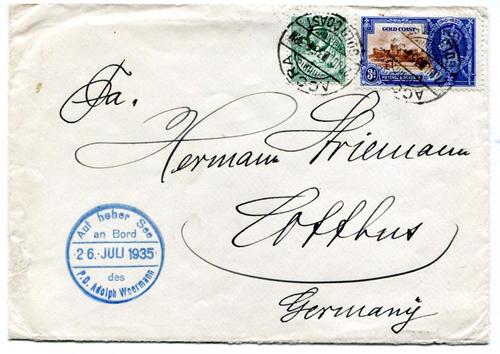 GOLD COAST
3D
POSTAGE & REVENUE
ACCRA
ACCRA
Fa.
Hermann Striemann
Cottbus
Germany
Auf hoher See
an Bord
26. JULI 1935
des
P.D. Adolph Woermann